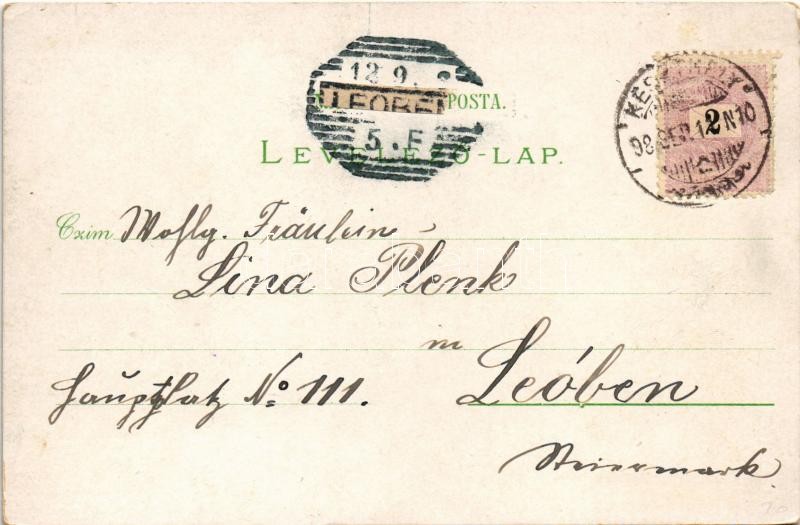 12 9.
LEOBEN
5.F
POSTA.
LEVELEZŐ-LAP.
KESZTHELY
98 SEP. 12 N10
2
Czim Wohlg. Fräulein
Lina Plenk
in
Hauptplatz No 111. Leóben
Steiermark